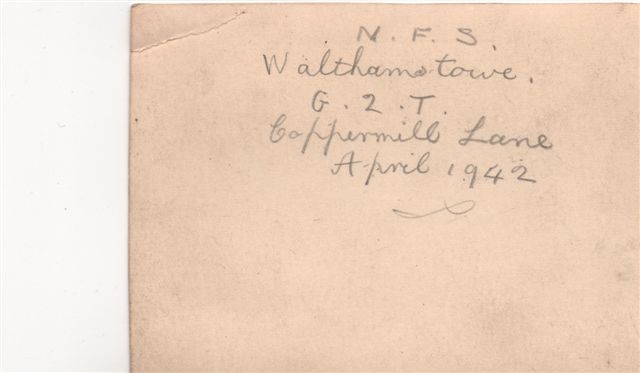 N. F. S.
Walthamstowe.
G. 2. T.
Coppermill Lane
April 1942